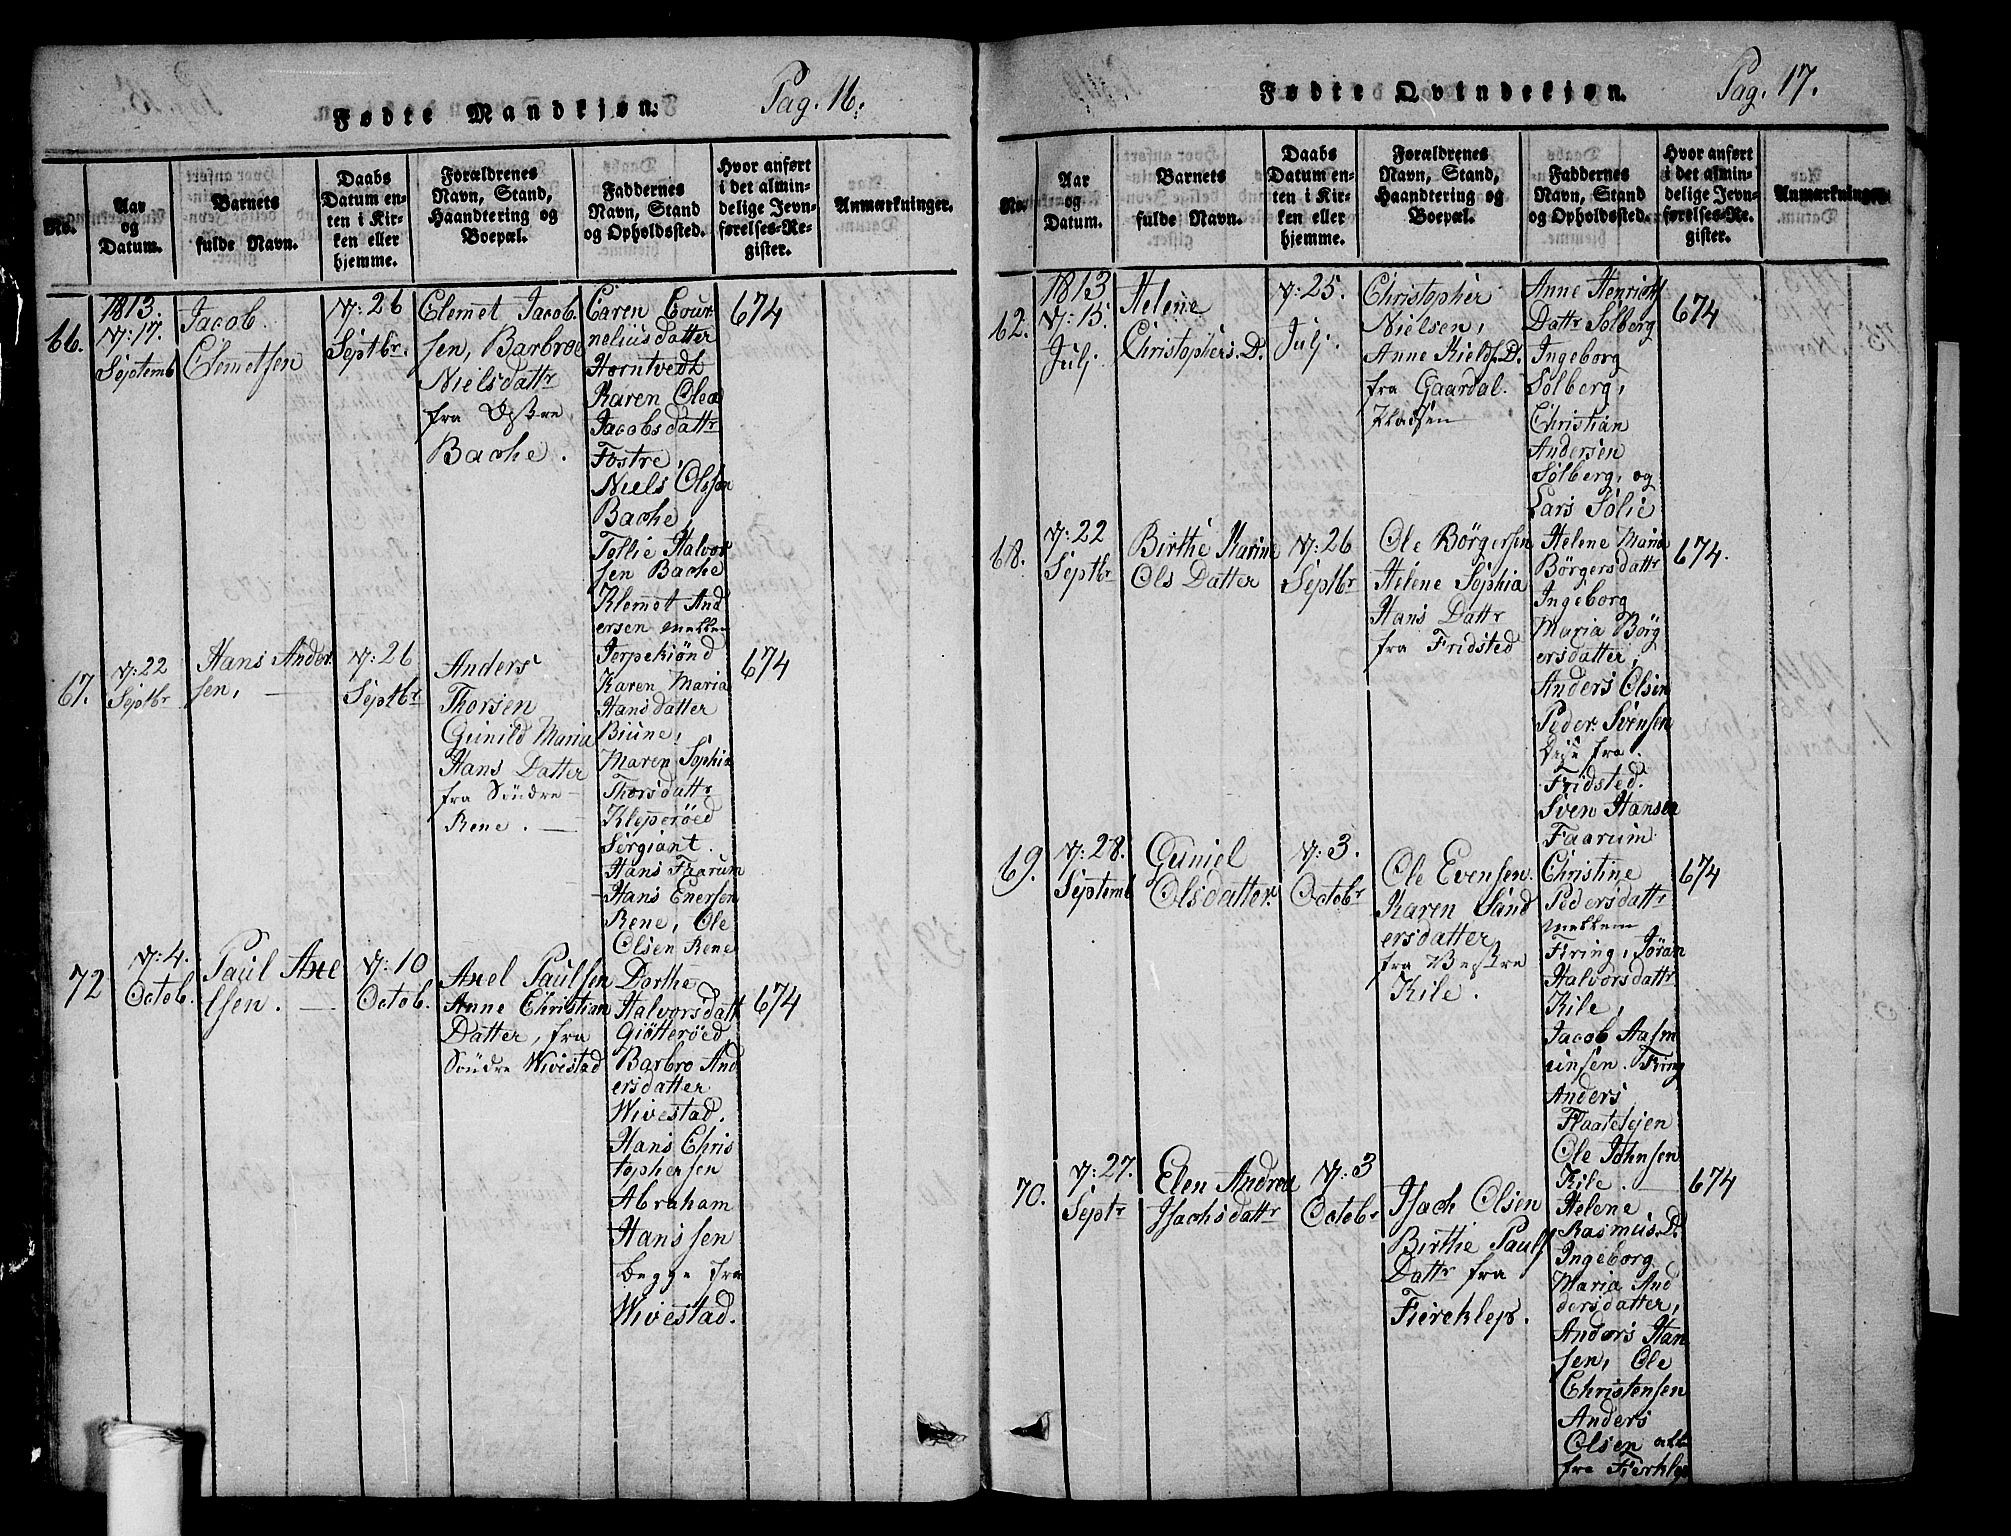 Fødte Mandkjøn.
Pag. 16.
No.
Aar og Datum.
Barnets fulde Navn.
Daabs Datum enten i Kirken eller hjemme.
Forældrenes Navn, Stand, Haandtering og Boepæl.
Faddernes Navn, Stand og Opholdssted.
Hvor anført i det almindelige Jevnførelses-Register.
Anmærkninger.
66.
1813.
d: 17.
Septemb
Jacob
Clemetsen
d: 26
Septbr.
Clemet Jacob
sen, Barbroe
Nielsdattr
fra Vestre
Bache.
Caren Cour
neliusdatter
Horntvedt
Karen Olea
Jacobsdattr
Fostre,
Niels Olssen
Bache,
Tollie Halvor
sen Bache
Klemet And
ersen mellem
Jerpekiønd
674
67.
d: 22
Septbr
Hans Ander
sen,
d: 26
Septbr
Anders
Thorsen
Gunild Maria
Hans Datter
fra Søndre
Rene.
Karen Maria
Hansdatter
Biune,
Maren Sophia
Thorsdattr
Kleperøed
Sergiant.
Hans Faarum
Hans Enersen
Rene, Ole
Olsen Rene
674
72
d: 4.
Octob.
Paul Axe
lsen.
d: 10
Octob.
Axel Paulsen
Anne Christian
Datter, fra
Søndre Wivestad
Dorthe
Halvorsdatt
Giøtterøed
Barbro And
ersdatter
Wivestad.
Hans Chris
tophersen
Abraham
Hanssen
begge fra
Wivestad.
674
Fødte Qvindekjøn.
Pag. 17.
No.
Aar og Datum.
Barnets fulde Navn.
Daabs Datum enten i Kirken eller hjemme.
Forældrenes Navn, Stand, Haandtering og Boepæl.
Faddernes Navn, Stand og Opholdssted.
Hvor anført i det almindelige Jevnførelses-Register.
Anmærkninger.
62.
1813
d: 15.
Julj
Helene
Christophers. D.
d: 25.
Julj.
Christopher
Nielsen,
Anne Kields. D.
fra Gaardal.
Pladsen
Anne Henrichs
Dattr Solberg
Ingeborg
Solberg,
Christian
Andersen
Solberg, og
Lars Solie
674
68.
d: 22
Septbr
Birthe Karine
Ols Datter
d: 26
Septbr
Ole Börgersen
Helene Sophia
Hans Dattr
fra Fridsted
Helene Maria
Börgersdattr
Ingeborg
Maria Börg
ersdatter,
Anders Olsen
Peder Svensen
fra
Fridsted.
Sven Hansen
Faarum
674.
69.
d: 28.
Septemb
Guniel
Olsdatter
d: 3.
Octobr
Ole Evensen.
Karen Sand
ersdatter
fra Vestre
Kile.
Christine
Pedersdattr
mellem
Firing, Jöran
Halvorsdattr
Kile,
Jacob Aasm
unsen. Firing
Anders
Flaatejen
Ole Johnsen
Kile.
674
70.
d: 27.
Septr
Elen Andrea
Isachsdattr
d: 3
Octobr
Isach Olsen
Birthe Pauls
Dattr fra
Fierehlep.
Helene
Rasmus. D.
Ingeborg
Maria And
dersdatter,
Anders Han
sen, Ole
Christensen
Anders
Olsen alle
fra Fierhlep
674